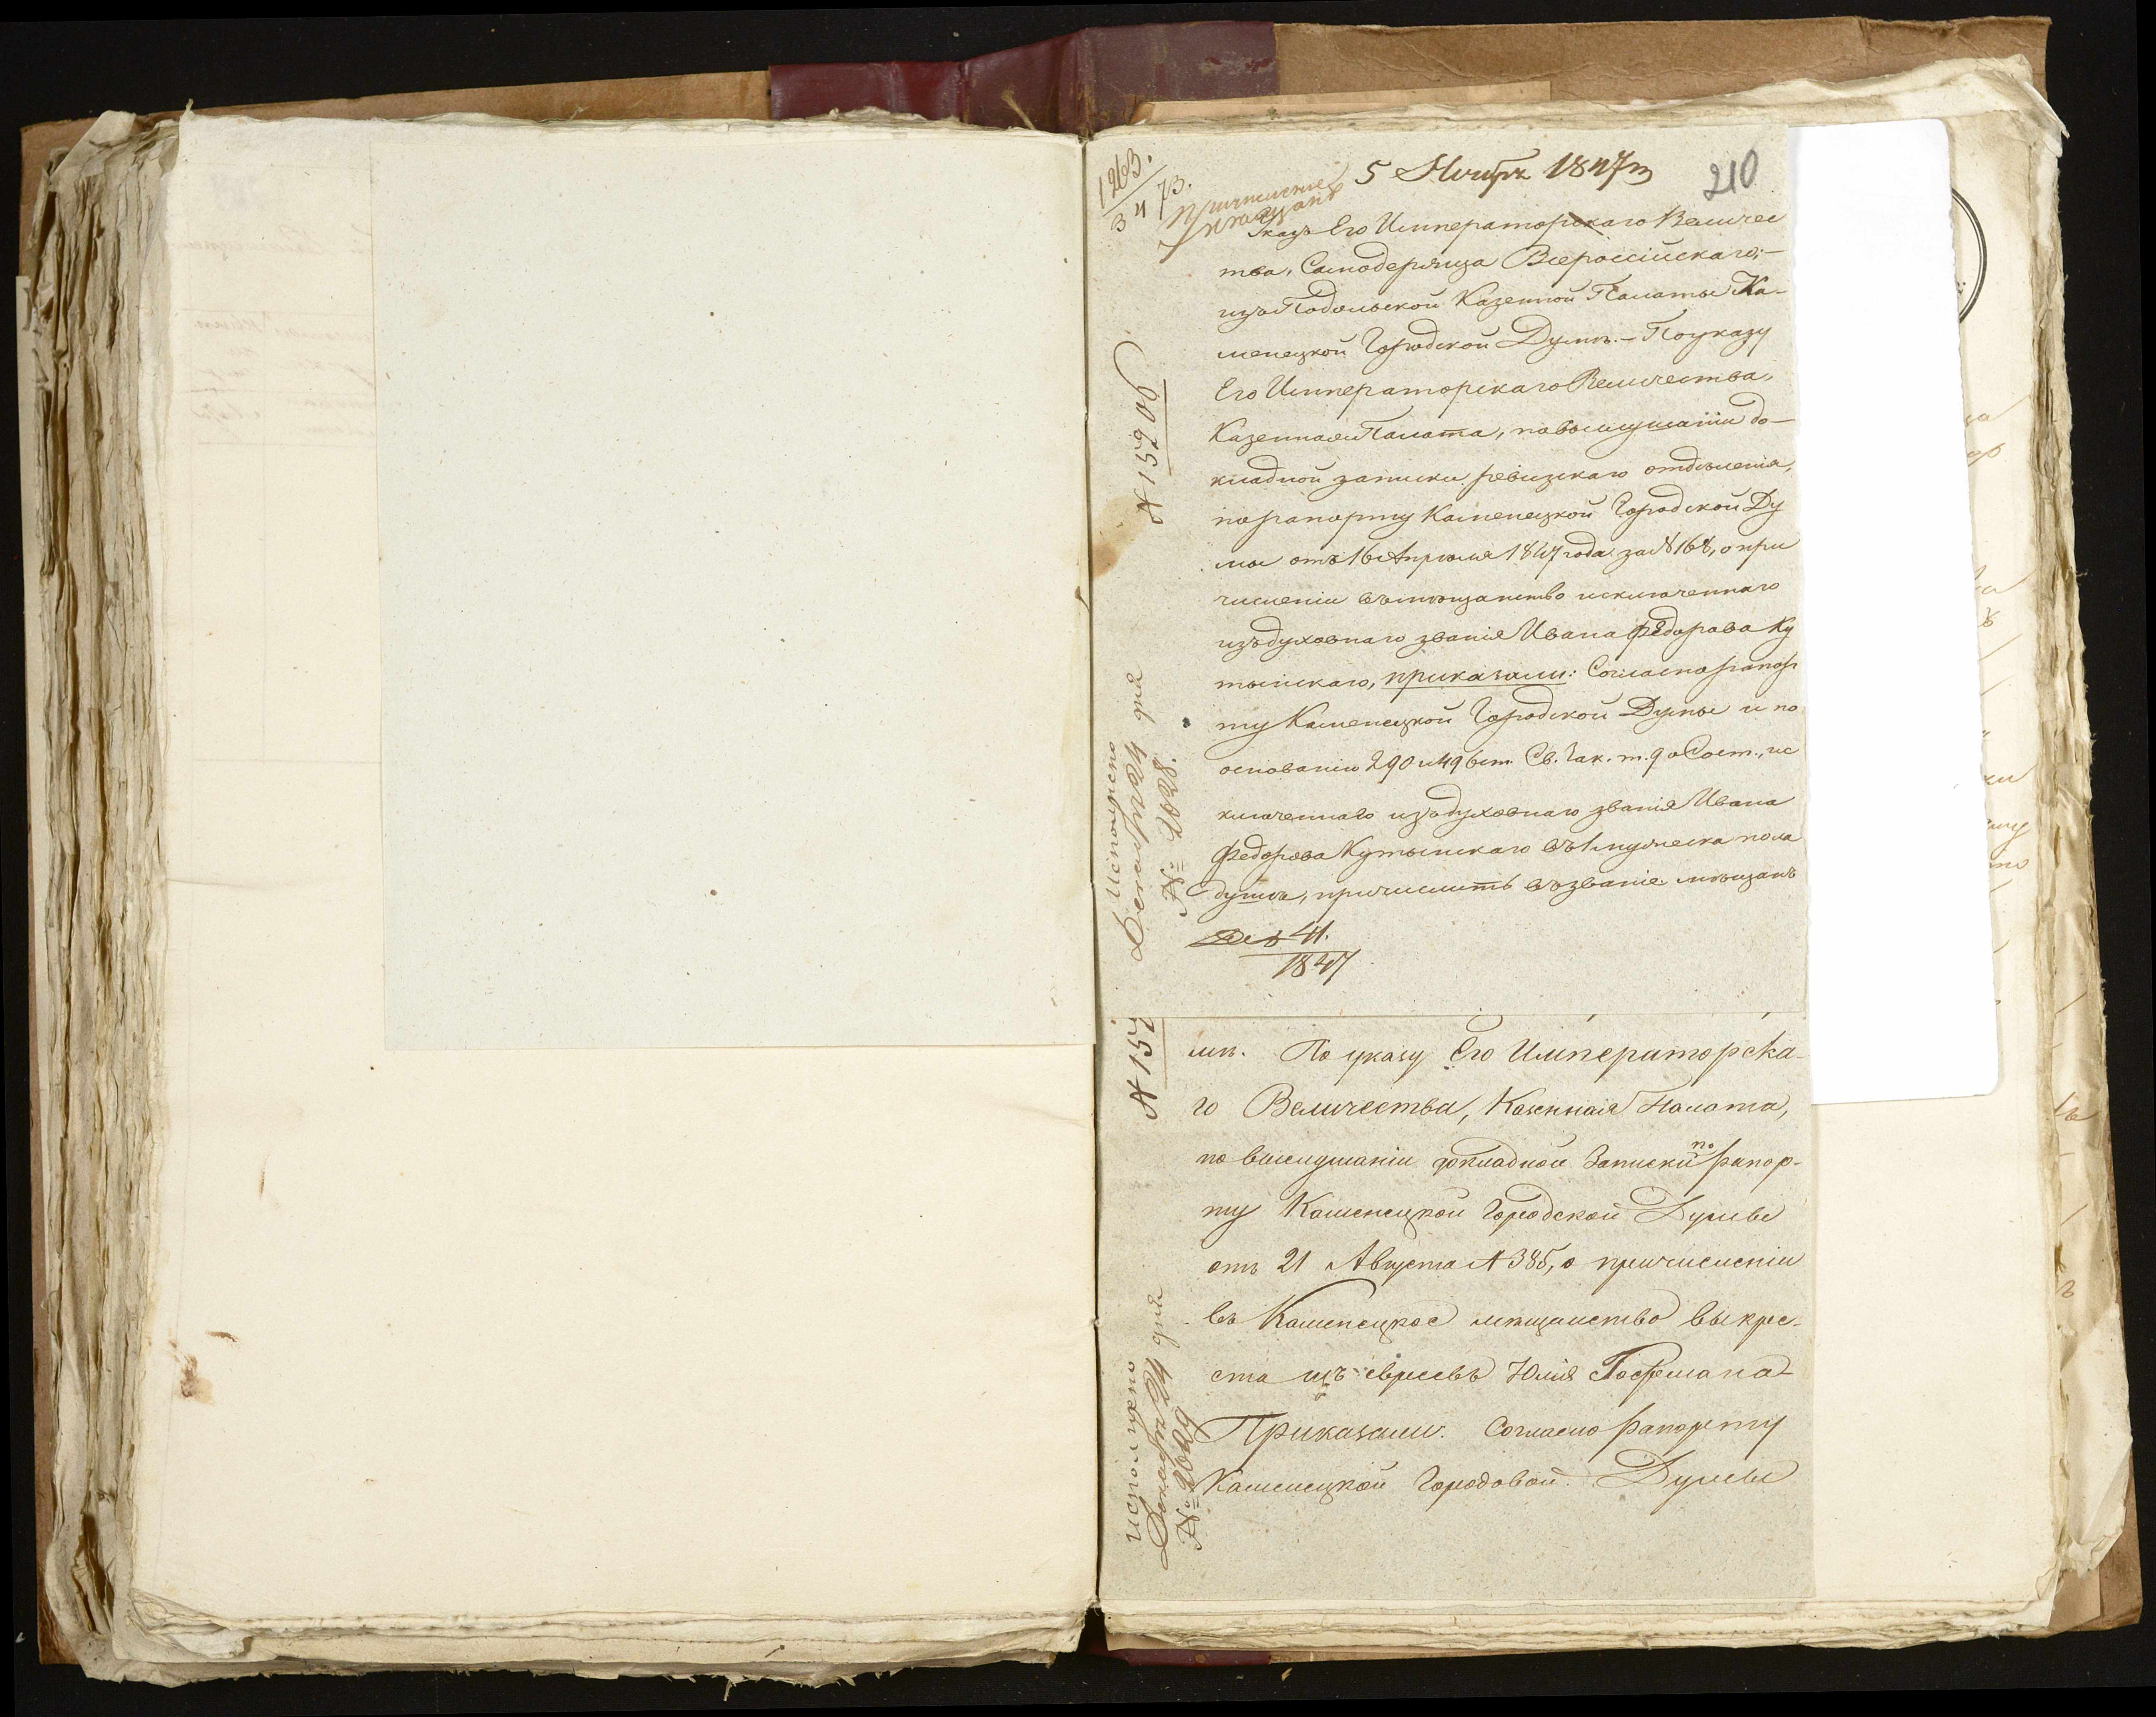 1263.
3473.
Причисление
мещанъ
5 Ноября 1847 г
210
Указъ Его Императорскаго Величес
тва, Самодержца Всероссійскаго,-
изъ Подольской Казенной Палаты Ка-
менецкой Городской Думѣ.- По указу
Его Императорскаго Величества,
Казенная Палата, по выслушаніи до-
кладной записки ревизскаго отдѣленія,
по рапорту Каменецкой Городской Ду
мы отъ 16 Апрѣля 1847 года за № 168, о при
численіи въ мѣщанство исключеннаго
изъ духовнаго званія Ивана Федорова Ку
тынскаго, приказали: Согласно рапор
ту Каменецкой Городской Думы и по
основанію 290 и 496 ст. Св. Зак. т. 9 о Сост., ис
ключеннаго изъ духовнаго званія Ивана
Федорова Кутынскаго въ 1 мужеска пола
душѣ, причислить въ званіе мѣщанъ
41.
1847
№ 15206
Исполнено
Декабря 24 дня
№ 2628.
мѣ. По указу Его Императорска-
го Величества, Казенная Палата,
по выслушаніи докладной Записки по рапор-
ту Каменецкой Городской Думы
отъ 21 Августа № 385, о причисленіи
въ Каменецкое мѣщанство выкрес-
та изъ евреевъ Юлія Гофмана
Приказали: Согласно рапорту
Каменецкой Городовой Думы
№ 152
Исполнено
Декабря 24 дня
№ 2629